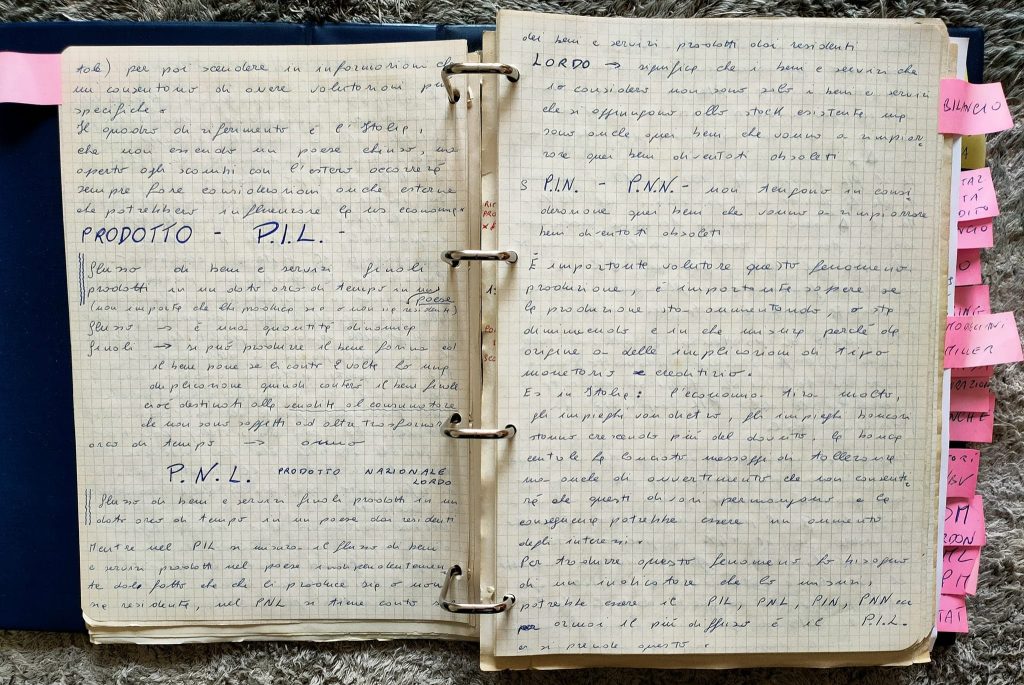 tale) per poi scendere in informazioni che
mi consentono di avere valutazioni più
specifiche.
Il quadro di riferimento è l'Italia,
che non essendo un paese chiuso, ma
aperto agli scambi con l'estero occorrerà
sempre fare considerazioni anche esterne
che potrebbero influenzare la ns economia.
PRODOTTO - P.I.L. -
flusso di beni e servizi finali
prodotti in un dato arco di tempo in un
paese
(non importa che chi produce sia o non sia residenti)
flusso → è una quantità dinamica
finali → si può produrre il bene farina ed
il bene pane se li conto 2 volte ho una
duplicazione quindi conterò il bene finale
cioè destinati alla vendita al consumatore
che non sono soggetti ad altra trasformaz.
arco di tempo → anno
P.N.L. PRODOTTO NAZIONALE
LORDO
flusso di beni e servizi finali prodotti in un
dato arco di tempo in un paese dai residenti
Mentre nel PIL si misura il flusso di beni
e servizi prodotti nel paese indipendentemen
te dal fatto che chi li produce sia o non
sia residente, nel PNL si tiene conto
dei beni e servizi prodotti dai residenti
LORDO → significa che i beni e servizi che
io considero non sono solo i beni e servizi
che si aggiungono allo stock esistente, ma
sono anche quei beni che vanno a rimpiaz-
zare quei beni diventati obsoleti
S P.I.N. - P.N.N. - non tengono in consi
derazione quei beni che vanno a rimpiazzare
beni diventati obsoleti
È importante valutare questo fenomeno
produzione, è importante sapere se
la produzione sta aumentando, o sta
diminuendo e in che misura perché dà
origine a delle implicazioni di tipo
monetario e creditizio.
Es in Italia: l'economia tira molto,
gli impieghi van dietro, gli impieghi bancari
stanno crescendo più del dovuto, la banca
centrale ha lanciato messaggi di tolleranza
ma anche di avvertimento che non consenti
rà che questi divari permangano e la
conseguenza potrebbe essere un aumento
degli interessi.
Per tradurre questo fenomeno ho bisogno
di un indicatore che lo misuri,
potrebbe essere il PIL, PNL, PIN, PNN ecc
ormai il più diffuso è il P.I.L.
e si prende questo.
BILANCIO
MODIGLIANI
MILLER